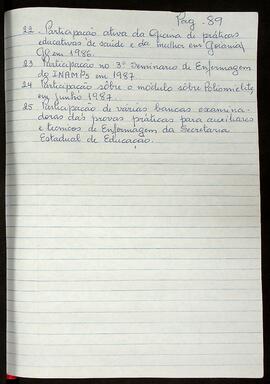 Pag. 89
22. Participação ativa da Oficina de práticas
educativas de saúde e da mulher em Goiania,
GO em 1986.
23 Participação no 3º Seminario de Enfermagem
do INAMPS em 1987
24 Participação sôbre o módulo sôbre Poliomielite,
em junho 1987.
25 Participação de várias bancas examina-
doras das provas práticas para auxiliares
e tecnicos de Enfermagem da Secretaria
Estadual de Educação.